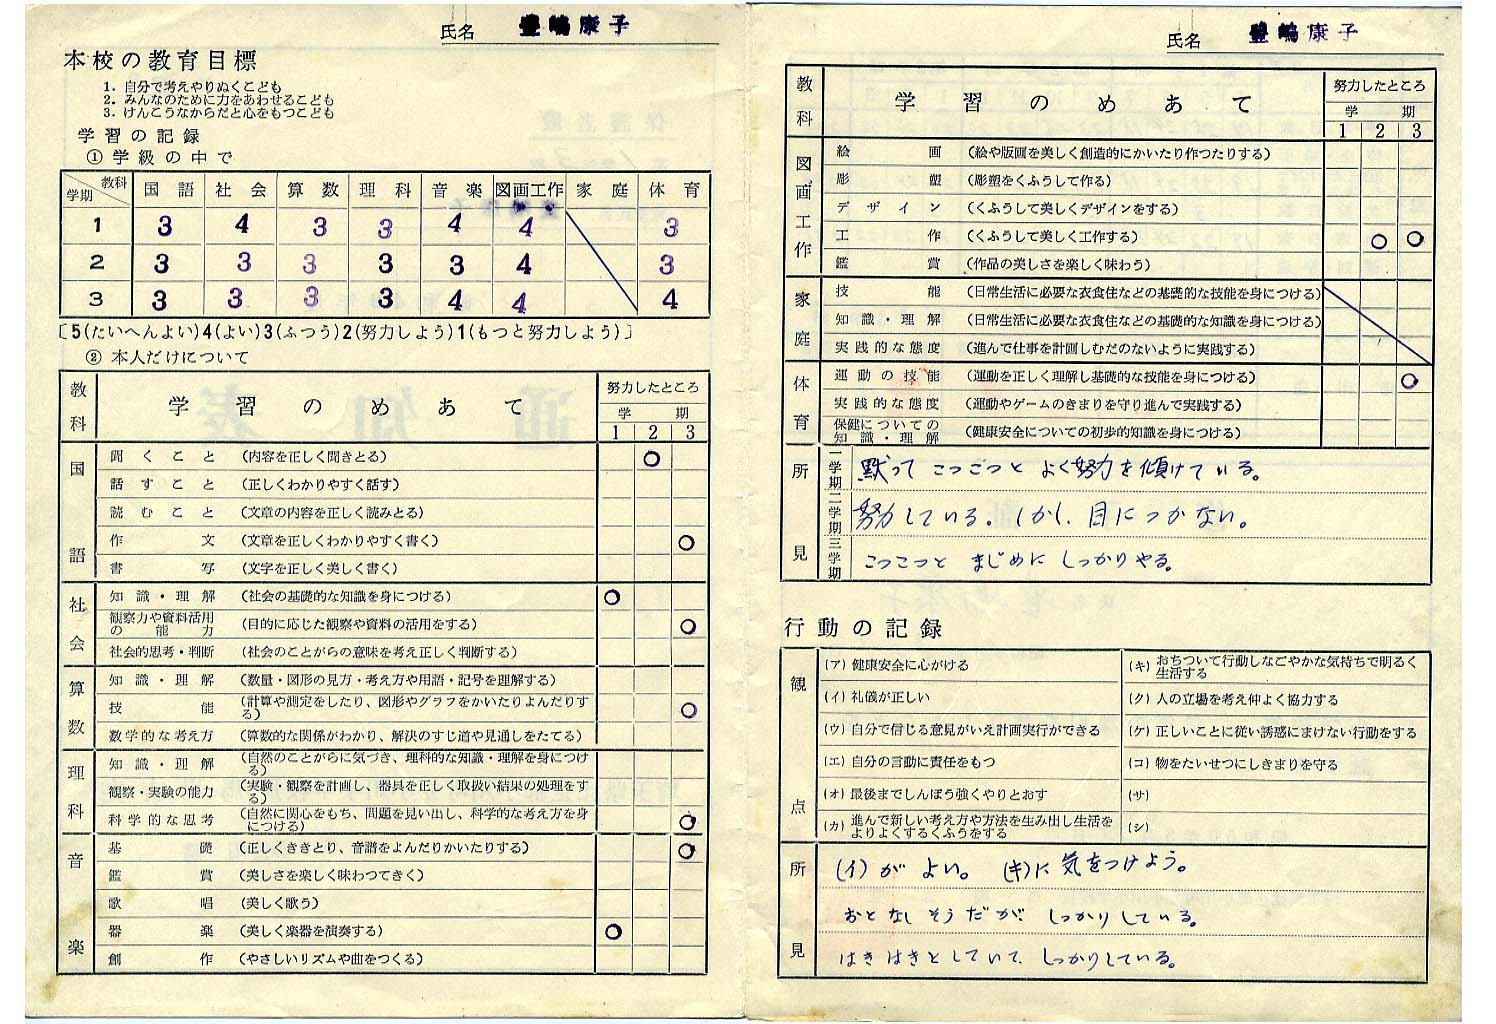 氏名 豊嶋康子
本校の教育目標
1. 自分で考えやりぬくこども
2. みんなのために力をあわせるこども
3. けんこうなからだと心をもつこども
学習の記録
① 学級の中で
学期 教科 国語 社会 算数 理科 音楽 図画工作 家庭 体育
1 3 4 3 3 4 4 3
2 3 3 3 3 3 4 3
3 3 3 3 3 4 4 4
〔5(たいへんよい)4(よい)3(ふつう)2(努力しよう)1(もつと努力しよう)〕
② 本人だけについて
教科 学習のめあて 努力したところ
学期
1 2 3
国語
聞くこと (内容を正しく聞きとる) ○
話すこと (正しくわかりやすく話す)
読むこと (文章の内容を正しく読みとる)
作文 (文章を正しくわかりやすく書く) ○
書写 (文字を正しく美しく書く)
社会
知識・理解 (社会の基礎的な知識を身につける) ○
観察力や資料活用の能力 (目的に応じた観察や資料の活用をする) ○
社会的思考・判断 (社会のことがらの意味を考え正しく判断する)
算数
知識・理解 (数量・図形の見方・考え方や用語・記号を理解する)
技能 (計算や測定をしたり、図形やグラフをかいたりよんだりする) ○
数学的な考え方 (算数的な関係がわかり、解決のすじ道や見通しをたてる)
理科
知識・理解 (自然のことがらに気づき、理科的な知識・理解を身につける)
観察・実験の能力 (実験・観察を計画し、器具を正しく取扱い結果の処理をする)
科学的な思考 (自然に関心をもち、問題を見い出し、科学的な考え方を身につける) ○
音楽
基礎 (正しくききとり、音譜をよんだりかいたりする) ○
鑑賞 (美しさを楽しく味わつてきく)
歌唱 (美しく歌う)
器楽 (美しく楽器を演奏する) ○
創作 (やさしいリズムや曲をつくる)
氏名 豊嶋康子
教科 学習のめあて 努力したところ
学期
1 2 3
図画工作
絵画 (絵や版画を美しく創造的にかいたり作つたりする)
彫塑 (彫塑をくふうして作る)
デザイン (くふうして美しくデザインをする)
工作 (くふうして美しく工作する) ○ ○
鑑賞 (作品の美しさを楽しく味わう)
家庭
技能 (日常生活に必要な衣食住などの基礎的な技能を身につける)
知識・理解 (日常生活に必要な衣食住などの基礎的な知識を身につける)
実践的な態度 (進んで仕事を計画しむだのないように実践する)
体育
運動の技能 (運動を正しく理解し基礎的な技能を身につける) ○
実践的な態度 (運動やゲームのきまりを守り進んで実践する)
保健についての知識・理解 (健康安全についての初歩的知識を身につける)
所見
一学期 黙って こつこつと よく努力を傾けている。
二学期 努力している。しかし、目につかない。
三学期 こつこつと まじめに しっかりやる。
行動の記録
観点
(ア) 健康安全に心がける
(イ) 礼儀が正しい
(ウ) 自分で信じる意見がいえ計画実行ができる
(エ) 自分の言動に責任をもつ
(オ) 最後までしんぼう強くやりとおす
(カ) 進んで新しい考え方や方法を生み出し生活をよりよくするくふうをする
(キ) おちついて行動しなごやかな気持ちで明るく生活する
(ク) 人の立場を考え仲よく協力する
(ケ) 正しいことに従い誘惑にまけない行動をする
(コ) 物をたいせつにしきまりを守る
(サ)
(シ)
所見
(イ)が よい。 (キ)に 気をつけよう。
おとなしそうだが しっかりしている。
はきはきとしていて しっかりしている。